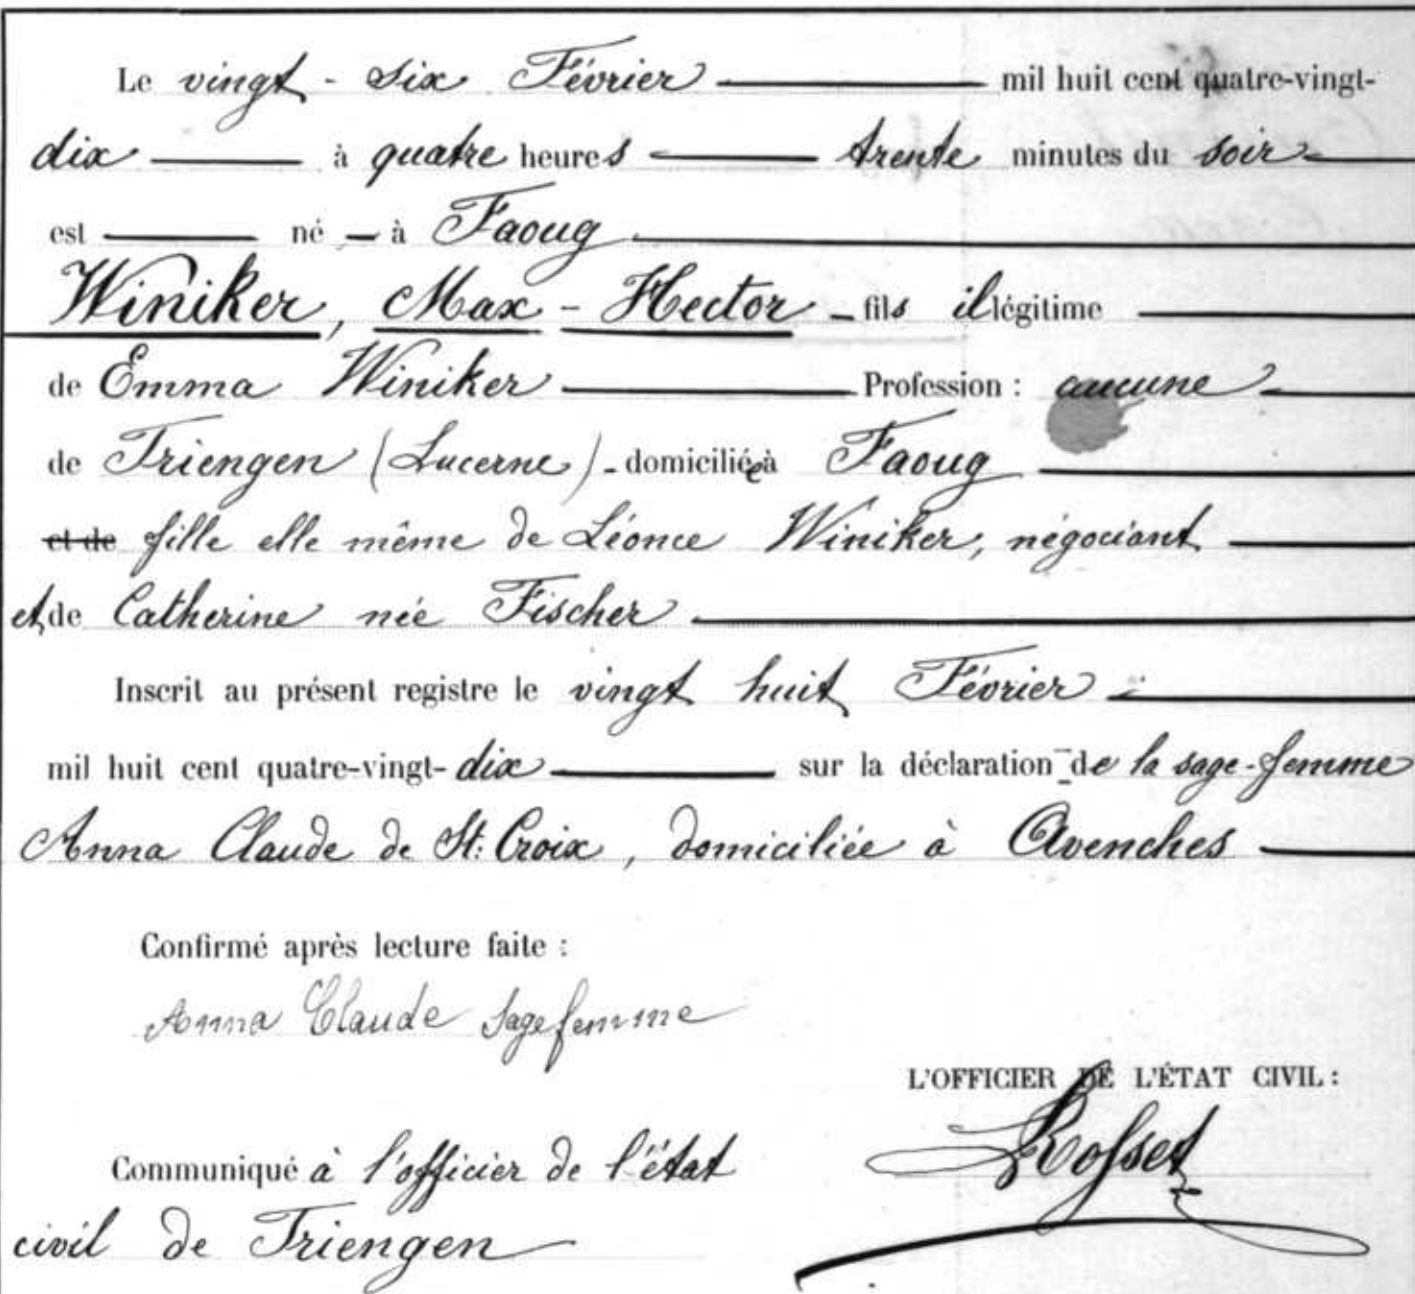 Le vingt-six Février mil huit cent quatre-vingt-
dix à quatre heures trente minutes du soir
est né à Faoug
Winiker, Max-Hector fils illégitime
de Emma Winiker Profession : aucune
de Triengen (Lucerne) domiciliée à Faoug
et de fille elle même de Léonce Winiker, négociant
et de Catherine née Fischer
Inscrit au présent registre le vingt huit Février
mil huit cent quatre-vingt-dix sur la déclaration de la sage-femme
Anna Claude de St. Croix, domiciliée à Avenches
Confirmé après lecture faite :
Anna Claude sage femme
L'OFFICIER DE L'ÉTAT CIVIL :
Rosset
Communiqué à l'officier de l'état
civil de Triengen